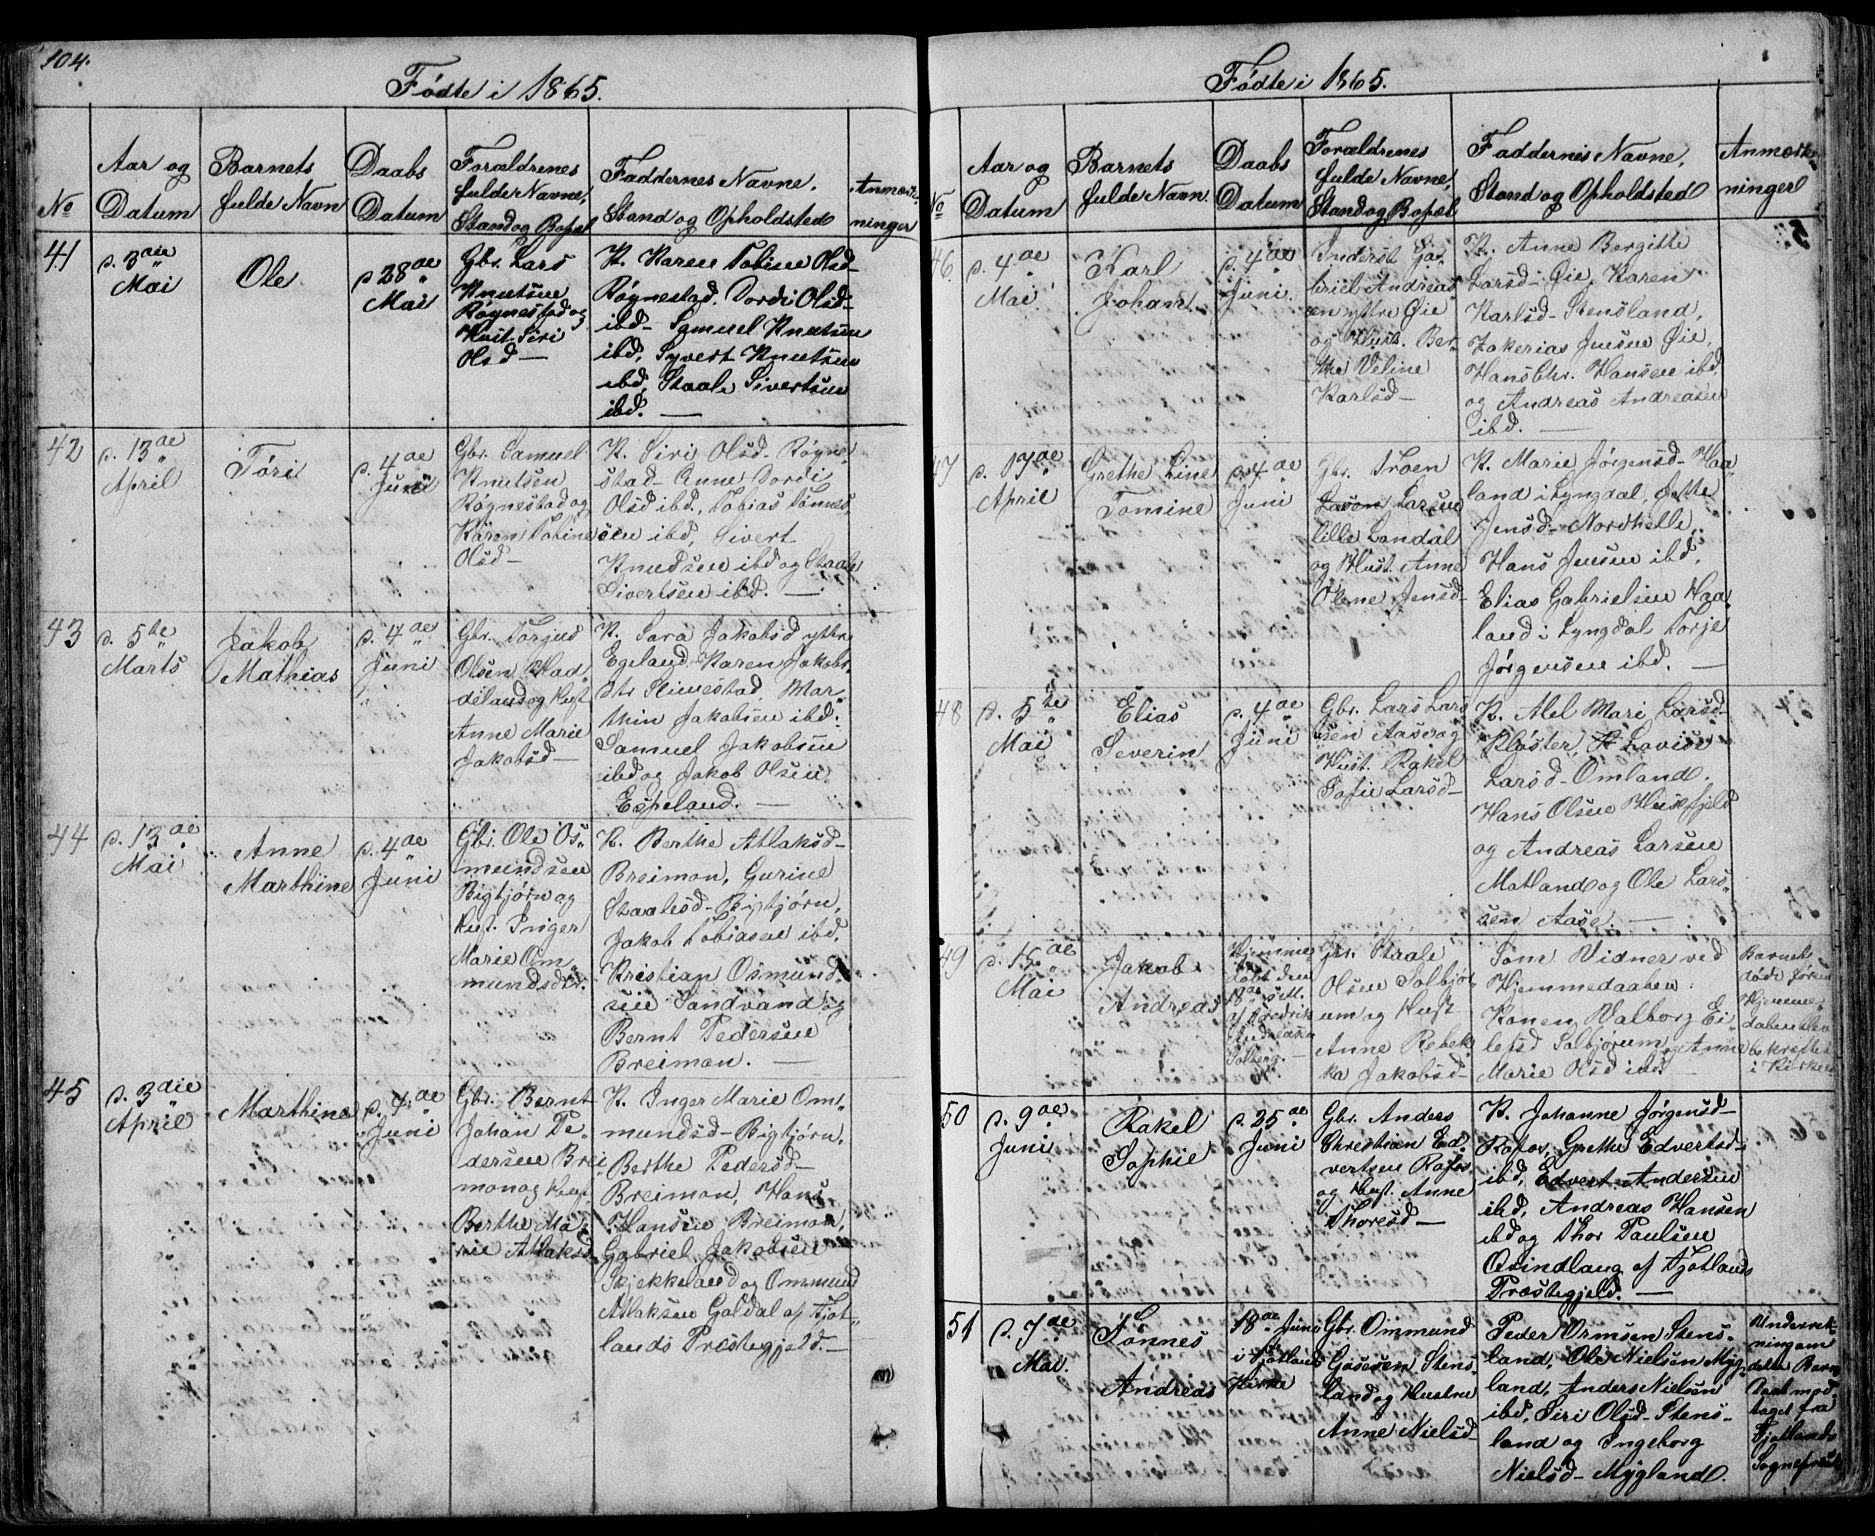 104.
Fødte i 1865.
No
Aar og
Datum
Barnets
fulde Navn
Daabs
Datum
Forældrenes
fulde Navne,
Stand og Bopæl
Faddernes Navne,
Stand og Opholdsted
Anmærk-
ninger
41
d. 3die
Mai
Ole
d. 28de
Mai
Gbr. Lars
Knutsen
Røgnestad og
Hust. Siri
Olsd-
K. Karen Tobine Olsd-
Røgnestad. Dordi Olsd-
ibd- Samuel Knutsen
ibd, Syvert Knutsen
ibd, Staale Sivertsen
ibd.-
42
d. 13de
April
Tøri
d. 4de
Juni
Gbr. Samuel
Knutsen
Røgnestad og
Karen Tobine
Olsd-
K. Siri Olsd- Røgne-
stad- Anne Dordi
Olsd ibd., Tobias Tønnes
sen ibd, Sivert
Knudsen ibd og Staale
Sivertsen ibd. -
43
d. 5te
Marts
Jakob
Mathias
d. 4de
Juni
Gbr. Torjus
Olsen Had-
deland og Hust
Anne Marie
Jakobsd-
K. Sara Jakobsd ytre
Egeland. Karen Jakobs
dtr Slimestad. Mar-
thin Jakobsen ibd.
Samuel Jakobsen
ibd og Jakob Olsen
Espeland. -
44
d. 13de
Mai
Anne
Marthine
d. 4de
Juni
Gbr. Ole Os-
mundsen
Bigtjørn og
Hust. Inger
Marie Om-
mundsdtr.
K. Berthe Atlaksd-
Breimon, Gurine
Staalesd- Bigtjørn,
Jakob Tobiasen ibd.
Kristian Osmund-
sen Sandvand og
Bernt Pedersen
Breimon. -
45
d. 3die
April
Marthine
d. 4de
Juni
Gbr. Bernt
Johan Pe-
dersen Brei-
mon og Hust
Berthe Ma-
rie Atlaksd
K. Inger Marie Om-
mundsd- Bigtjørn.
Berthe Pedersd-
Breimon, Hans
Hansen Breimon,
Gabriel Jakobsen
Skjekkeland og Ommund
Atlaksen Goldal af Fjot-
lands Prestegjeld-
Fødte i 1865.
No
Aar og
Datum
Barnets
fulde Navn
Daabs
Datum
Forældrenes
fulde Navne,
Stand og Bopæl
Faddernes Navne,
Stand og Opholdsted
Anmærk-
ninger
46
d. 4de
Mai
Karl
Johan
d. 4de
Juni.
Inderst Ga-
briel Andreas-
en yttre Øie
og Hust. Ber-
the Veline
Karlsd-
K. Anne Bergitte
Larsd- Øie, Karen
Karlsd- Stensland,
Zakerias Jensen Øie,
Hans Chr. Hansen ibd
og Andreas Andreasen
ibd. -
47
d. 17de
April
Grethe Line
Tomine
d. 4de
Juni
Gbr. Troen
Larsen
lille Landal
og Hust. Anne
Olene Jensd-
K. Marie Jørgensd- Haa
land i Lyngdal, Jette
Jensd- Nordhelle,
Hans Jensen ibd,
Elias Gabrielsen Haa
land i Lyngdal Torje
Jørgensen ibd. -
48
d. 5te
Mai
Elias
Severin
d. 4de
Juni
Gbr. Lars Lars
sen Aase og
Hust. Rakel
Sofie Larsd-
K. Alel Mari Larsd-
Kløster, Lovise
Larsd- Omland.
Hans Olsen Husefjeld
og Andreas Larsen
Matland og Ole Lars-
sen Aase. -
49
d. 15de
Mai
Jakob
Andreas
Hjemme
døbt den
18de sett.
af Fredrik
Andreasen
Solberg.
Gbr. Staale
Olsen Solbjor-
um og Hust
Anne Rebek-
ka Jakobsd-
Som Vidner ved
Hjemmedaaben:
Konen Valborg Ei-
lefsd Solbjorum og Anne
Marie Olsd ibd.
Barnet
døde førend
Hjemme-
daben blev
bekræftet
i Kirken
50
d. 9de
Juni
Rakel
Sophie
d. 25de
Juni
Gbr. Anders
Christian Ed-
vertsen Rafos
og Hust. Anne
Thoresd-
K. Johanne Jørgensd-
Rafos, Grethe Edvertsd-
ibd, Edvert Andersen
ibd, Andreas Hansen
ibd og Thor Paulsen
Qvindlaug af Fjotlands
Præstegjeld. -
51
d. 7de
Mai.
Tønnes
Andreas
18de Juni
i Fjotlands
Kirke
Gbr. Ommund
Gosesen Stens-
land og Hustru
Anne Nielsd-
Peder Ormsen Stens-
land, Ole Nielsen Myg-
land, Anders Nielsen
ibd, Siri Olsd- Stens-
land og Ingeborg
Nielsd- Mygland.
Underret-
ning om
dette Barns
Daab mod-
taget fra
Fjotlands
Sognepræst